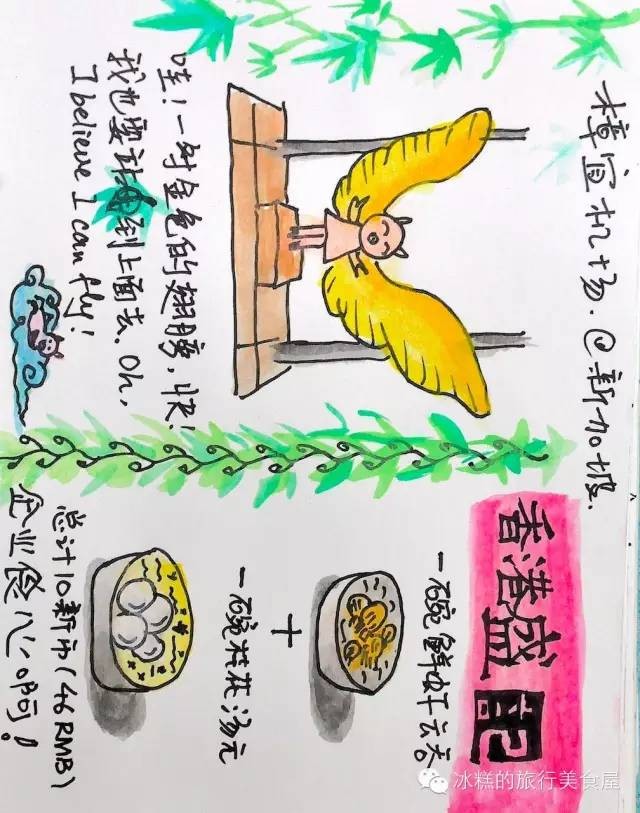 樟宜机场.@新加坡.
哇!一对金色的翅膀,快!
我也要站到上面去.Oh,
I believe I can fly!
香港盛記
一碗鲜虾云吞
+
一碗桂花汤元
总计10新币(46RMB)
企业良心啊!
冰糕的旅行美食屋